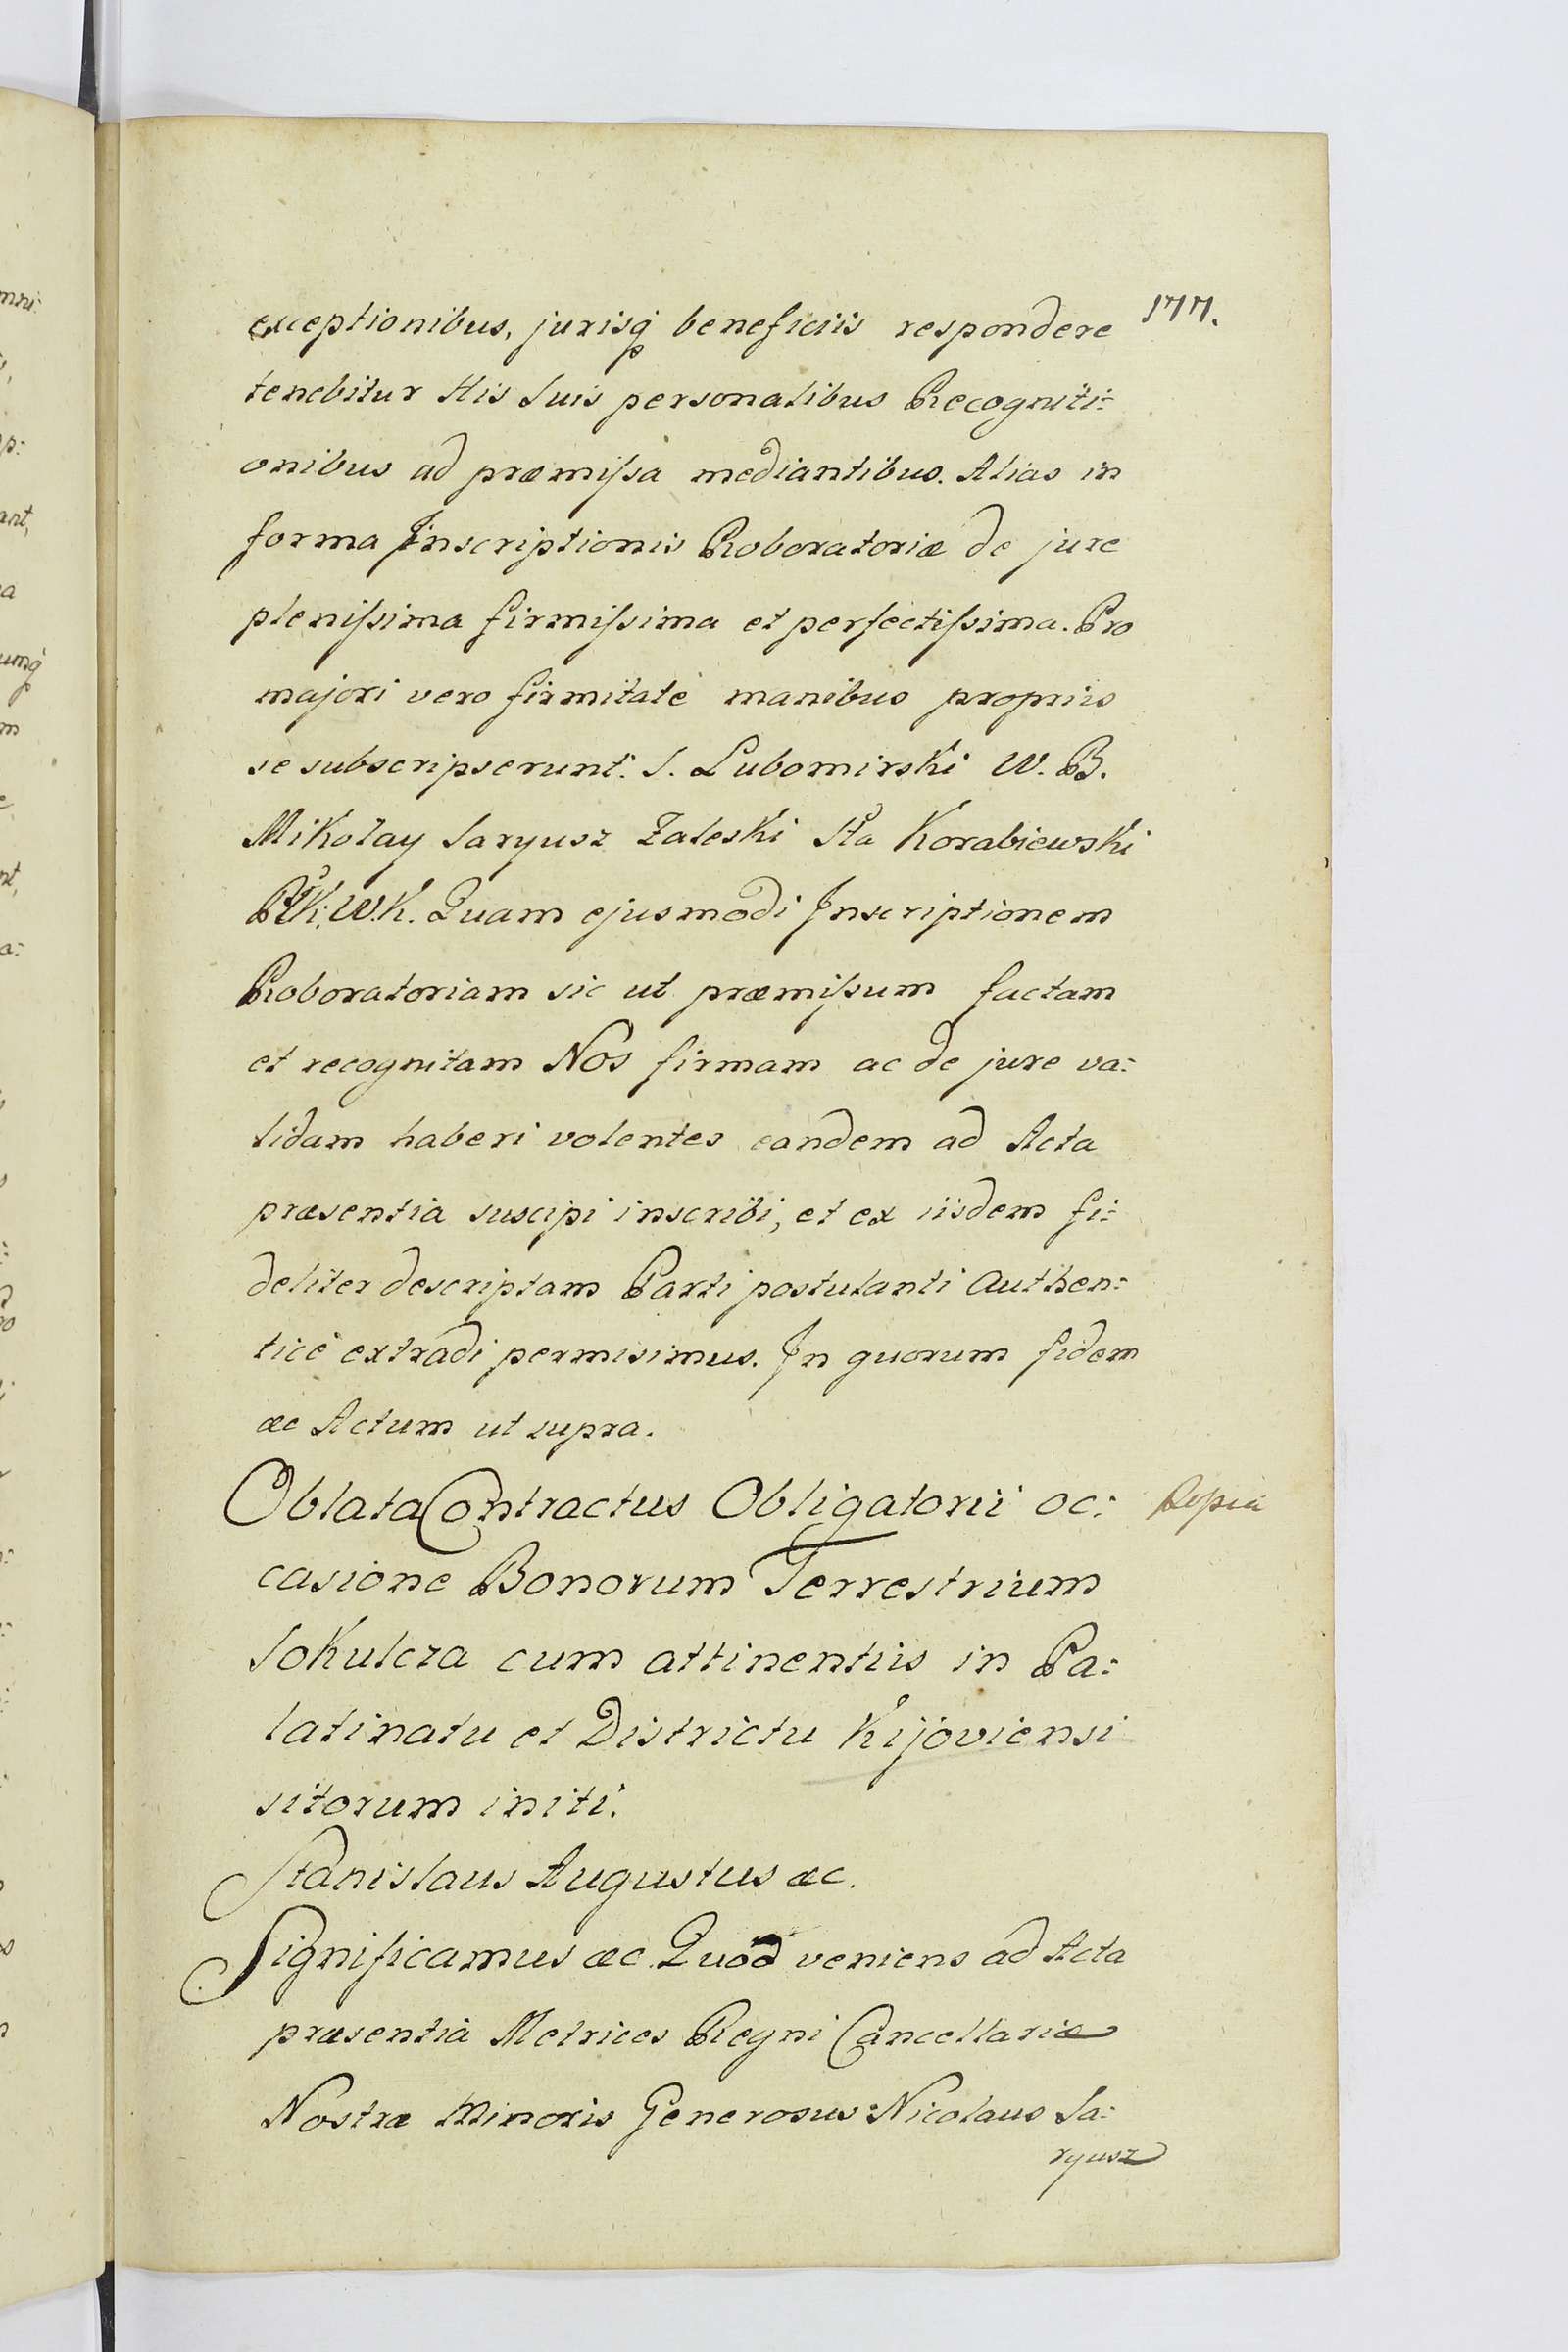 177.
exceptionibus, jurisq́ beneficiis respondere
tenebitur His Suis personalibus Recogniti:
onibus ad præmiſsa mediantibus. Alias in
forma Inscriptionis Roboratoriæ de jure
pleniſsima firmiſsima et perfectiſsima. Pro
majori vero firmitate manibus propriis
se subscripserunt: S. Lubomirski W. B.
Mikołay Saryusz Zaleski Sta Korabiewski
W.K. Quam ejusmodi Inscriptionem
Roboratoriam sic ut præmiſsum factam
et recognitam Nos firmam ac de jure va:
lidam haberi volentes eandem ad Acta
præsentia suscipi inscribi, et ex iisdem fi:
deliter descriptam Parti postulanti Authen:
ticè extradi permisimus. In quorum fidem
æc Actum ut supra.
Oblata Contractus Obligatorii oc:
casione Bonorum Terrestrium
Sokulcza cum attinentiis in Pa:
latinatu et Districtu Kijoviensi
sitorum initi.
Stanislaus Augustus æc.
Significamus æc. Quod veniens ad Acta
præsentia Metrices Regni Cancellariæ
Nostræ Minoris Generosus Nicolaus Sa:
ryusz